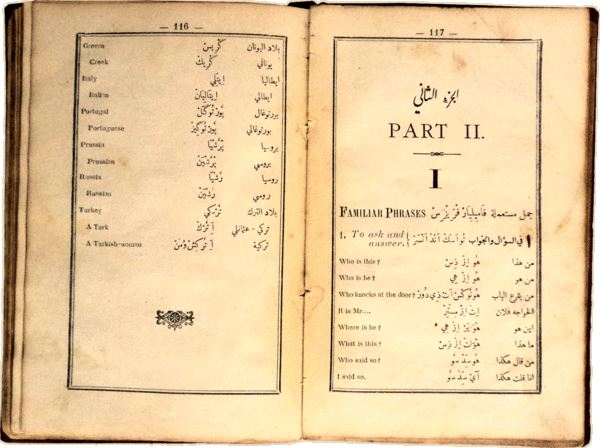 — 116 —
Greece كْرِيسْ بلاد اليونان
Greek كْرِيكْ يوناني
Italy اِيتَلِي ايطاليا
Italian اِيتَالِيَانْ ايطالي
Portugal پُورْتُوكَلْ بورتوغال
Portuguese پُورْتُوكِيزْ بورتوغالي
Prussia پْرُشْيَا بروسيا
Prussian پْرُشْيَنْ بروسي
Russia رُشْيَا روسيا
Russian رُشْيَنْ روسي
Turkey تُرْكِي بلاد الترك
A Turk اَ تُرْكْ تركي - عثماني
A Turkish-woman اَ تُرْكِشْ وُمَنْ تركية
— 117 —
الجزء الثاني
PART II.
I
FAMILIAR PHRASES فَامِيلِيَارْ فْرَيْزِسْ جمل مستعملة
1. To ask and answer. تُو اَسْكْ اَنْدْ اَنْسَرْ في السؤال والجواب ١
Who is this? هُو اِزْ ذِسْ من هذا
Who is he? هُو اِزْ هِي من هو
Who knocks at the door? هُو نُوكْسْ اَتْ ذِي دُورْ من يقرع الباب
It is Mr.... اِتْ اِزْ مِسْتِرْ الخواجه فلان
Where is he? هْوَيرْ اِزْ هِي اين هو
What is this? هْوَاتْ اِزْ ذِسْ ما هذا
Who said so? هُو سِدْ سُو من قال هكذا
I said so. آيْ سِدْ سُو انا قلت هكذا